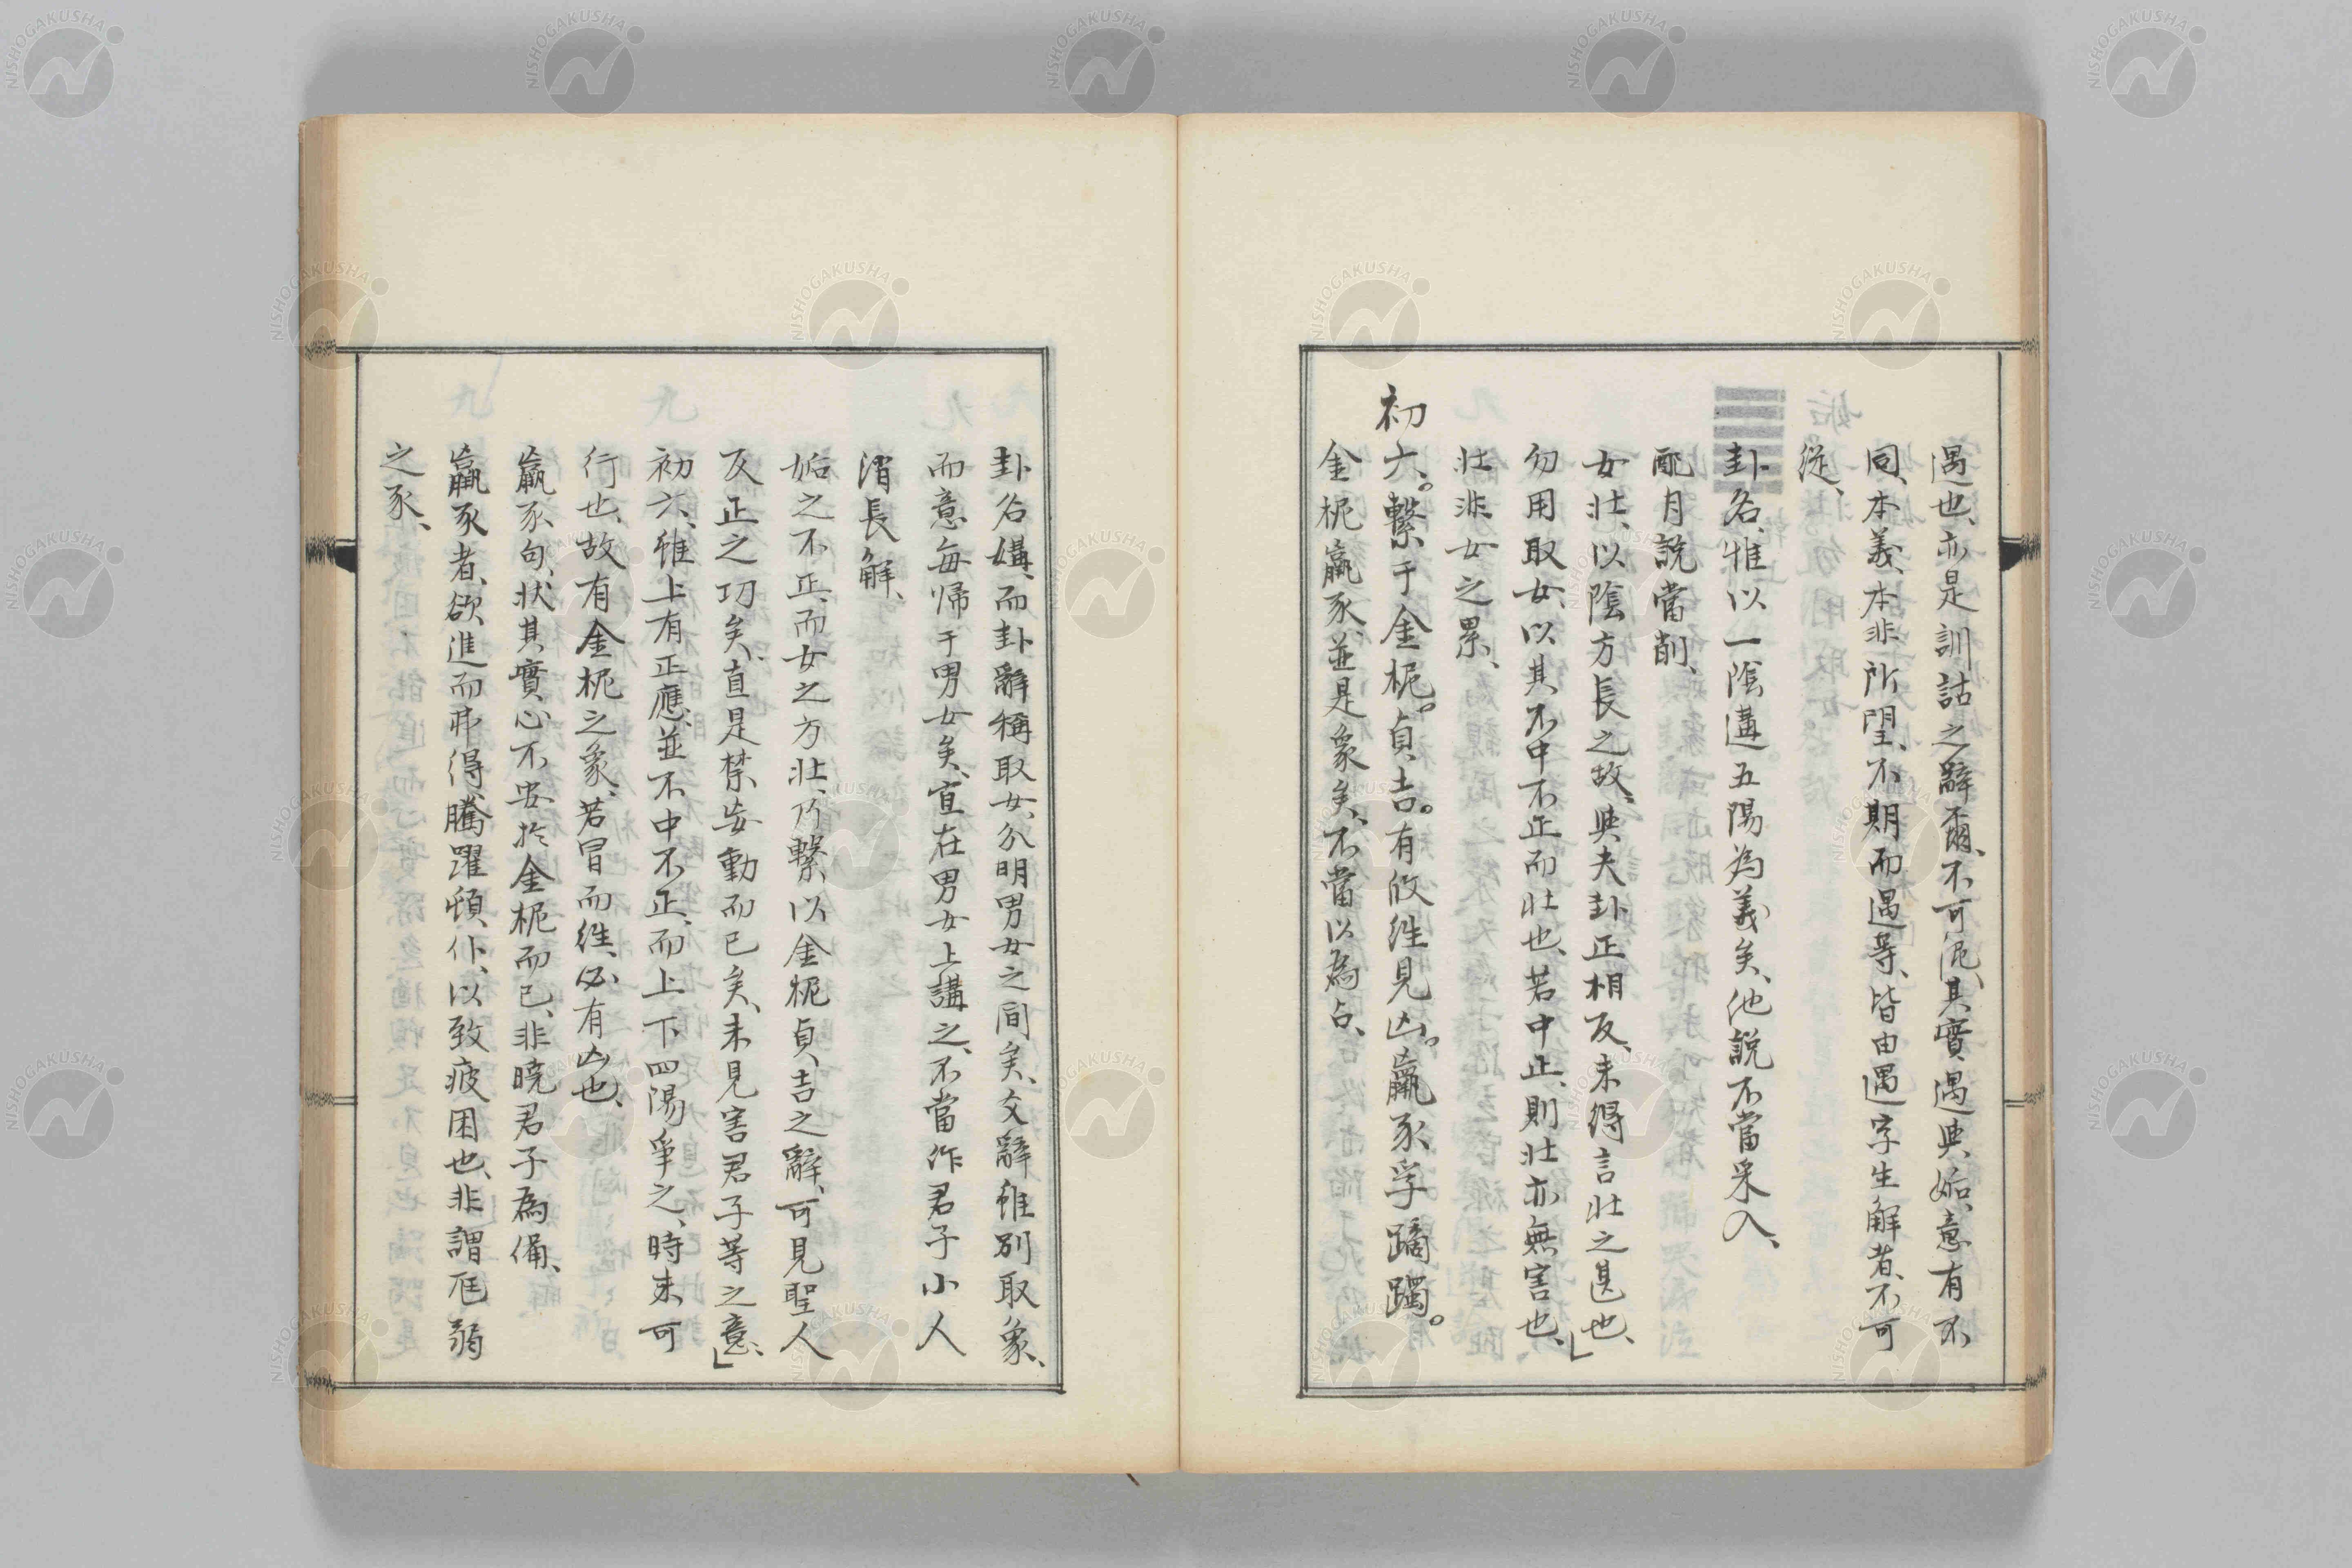 遇也、亦是訓詁之辭爾、不可泥、其實、遇與姤、意有不
同、本義、本非所望、不期而遇等、皆由遇字生解者、不可
從、
卦名、惟以一陰遘五陽為義矣、他說不當采入、
配月說當削、
女壯、以陰方長之故、與夬卦正相反、未得言壯之甚也、」
勿用取女、以其不中不正而壯也、若中正、則壯亦無害也、
壯非女之累、
初六。繫于金柅。貞、吉。有攸往見凶。羸豕孚蹢躅。
金柅羸豕、並是象矣、不當以為占、
卦名媾、而卦辭稱取女、分明男女之間矣、爻辭雖別取象、
而意每帰于男女矣、宜在男女上講之、不當作君子小人
消長解、
姤之不正、而女之方壯、乃繫以金柅貞、吉之辭、可見聖人
反正之功矣、直是禁妄動而已矣、未見害君子等之意、」
初六、雖上有正應、並不中不正、而上下四陽爭之、時未可
行也、故有金柅之象、若冒而往、必有凶也、
羸豕句、状其實、心不安於金柅而已、非暁君子為備、
羸豕者、欲進而弗得、騰躍頓仆、以致疲困也、非謂尫弱
之豕、
NISHOGAKUSHA